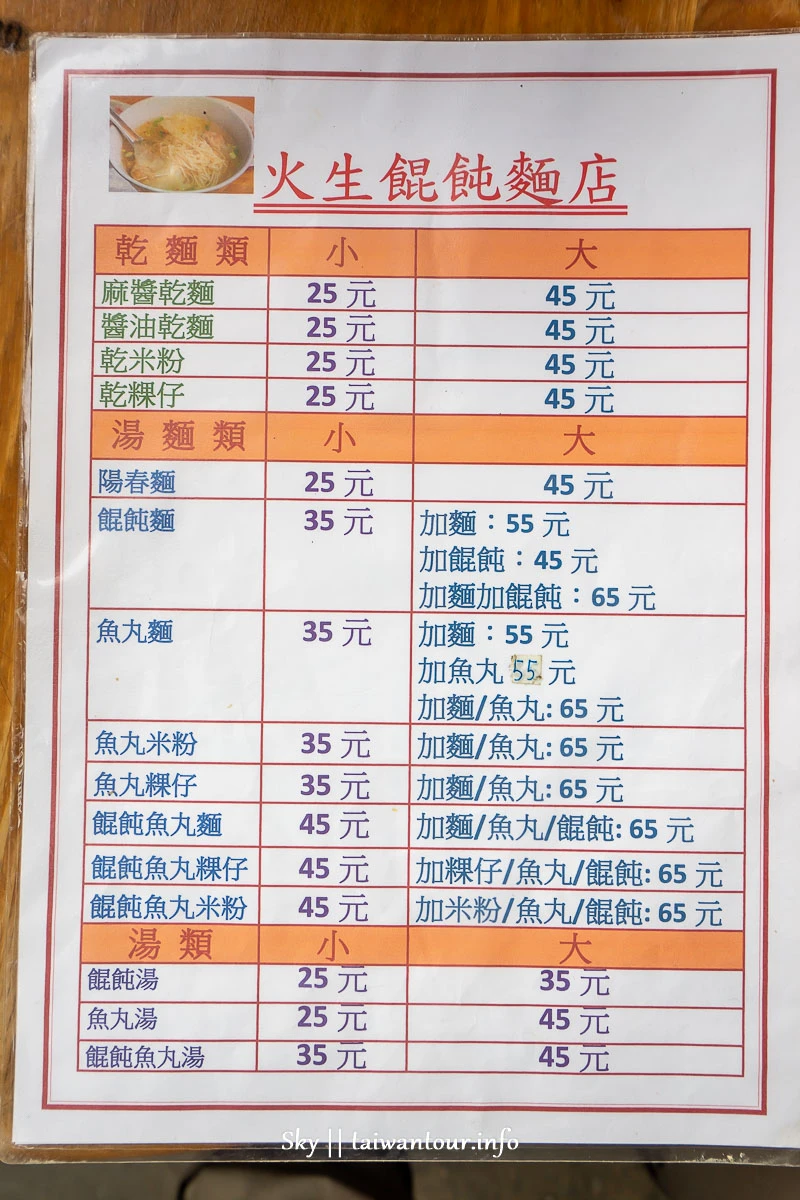 火生餛飩麵店
乾麵類 小 大
麻醬乾麵 25元 45元
醬油乾麵 25元 45元
乾米粉 25元 45元
乾粿仔 25元 45元
湯麵類 小 大
陽春麵 25元 45元
餛飩麵 35元 加麵：55元
加餛飩：45元
加麵加餛飩：65元
魚丸麵 35元 加麵：55元
加魚丸 55 元
加麵/魚丸: 65元
魚丸米粉 35元 加麵/魚丸: 65元
魚丸粿仔 35元 加麵/魚丸: 65元
餛飩魚丸麵 45元 加麵/魚丸/餛飩: 65元
餛飩魚丸粿仔 45元 加粿仔/魚丸/餛飩: 65元
餛飩魚丸米粉 45元 加米粉/魚丸/餛飩: 65元
湯類 小 大
餛飩湯 25元 35元
魚丸湯 25元 45元
餛飩魚丸湯 35元 45元
Sky || taiwantour.info